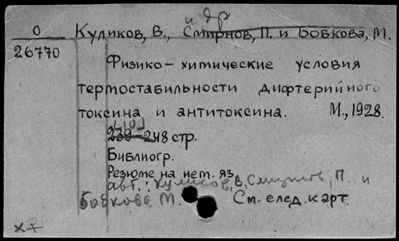 и др
О Куликов, В., Смирнов, П. и Бобкова, М.
26770
Физико-химические условия
термостабильности дифтерийного
токсина и антитоксина. М., 1928.
[10]
239-248 стр.
Библиогр.
Резюме на нем. яз.
авт.: Куликов, В, Смирнов, П. и
Бобкова М. См. след. карт.